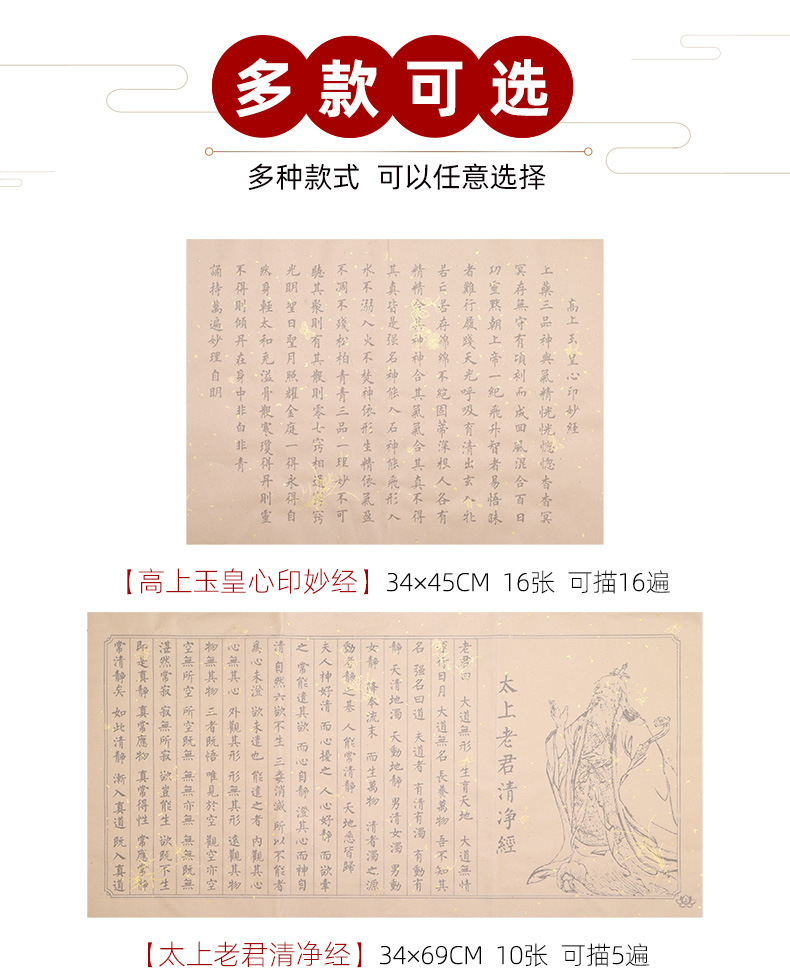 多款可选
多种款式 可以任意选择
高上玉皇心印妙經
上藥三品神與氣精恍恍惚惚杳杳冥
冥存無守有頃刻而成回風混合百日
功靈默朝上帝一紀飛升智者易悟昧
者難行履踐天光呼吸育清出玄入牝
若亡若存綿綿不絕固蒂深根人各有
精精合其神神合其氣氣合其真不得
其真皆是强名神能入石神能飛形入
水不溺入火不焚神依形生精依氣盈
不凋不殘松柏青青三品一理妙不可
聽其聚則有其散則零七竅相通竅竅
光明聖日聖月照耀金庭一得永得自
然身輕太和充溢骨散寒瓊得丹則靈
不得則傾丹在身中非白非青
誦持萬遍妙理自明
【高上玉皇心印妙经】34×45CM 16张 可描16遍
太上老君清净經
老君曰 大道無形 生育天地 大道無情
運行日月 大道無名 長養萬物 吾不知其
名 强名曰道 夫道者 有清有濁 有動有
靜 天清地濁 天動地靜 男清女濁 男動
女靜 降本流末 而生萬物 清者濁之源
動者靜之基 人能常清靜 天地悉皆歸
夫人神好清 而心擾之 人心好靜 而欲牽
之 常能遣其欲 而心自靜 澄其心而神自
清 自然六欲不生 三毒消滅 所以不能者
爲心未澄 欲未遣也 能遣之者 內觀其心
心無其心 外觀其形 形無其形 遠觀其物
物無其物 三者既悟 唯見於空 觀空亦空
空無所空 所空既無 無無亦無 無無既無
湛然常寂 寂無所寂 欲豈能生 欲既不生
即是真靜 真常應物 真常得性 常應常靜
常清靜矣 如此清靜 漸入真道 既入真道
【太上老君清净经】34×69CM 10张 可描5遍